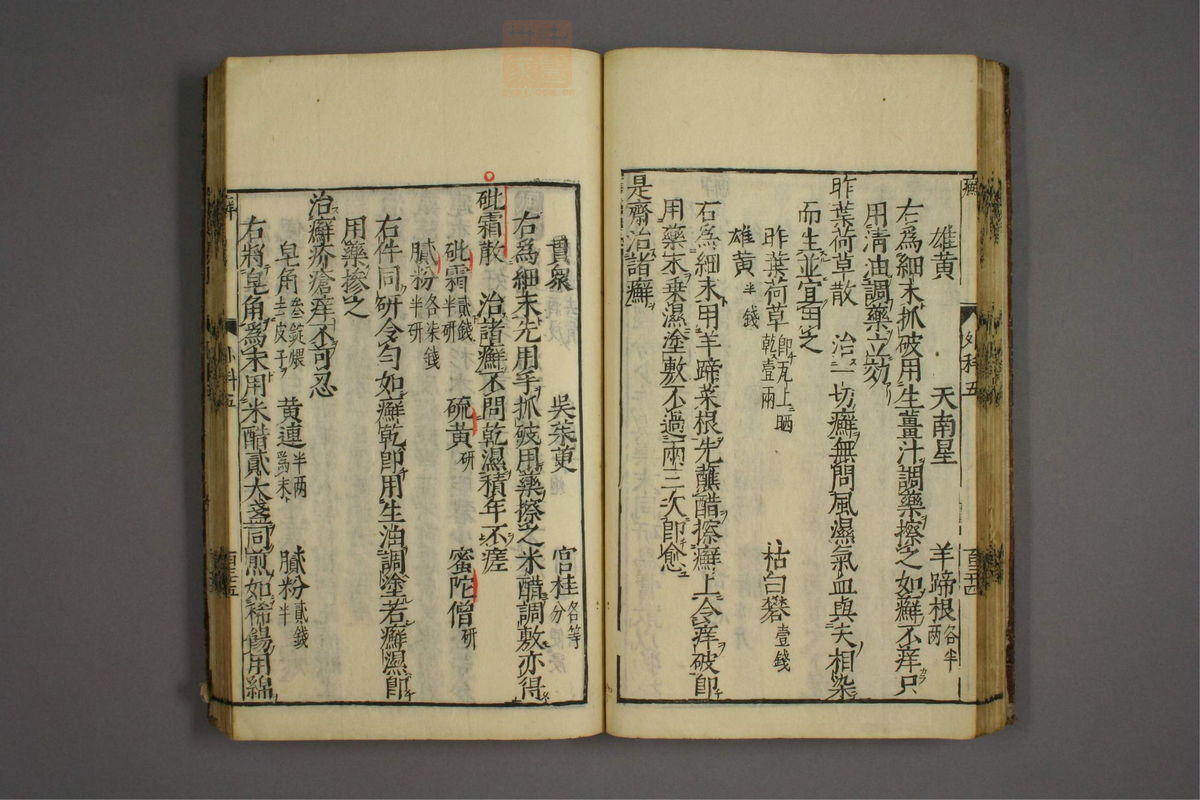 雄黄 天南星 羊蹄根各半兩
右爲細末抓破用生薑汁調藥擦之如癬不痒只
用清油調藥立效
昨葉荷草散 治一切癬無問風濕氣血與夫相染
而生並宜用之
昨葉荷草即瓦上晒乾壹兩 枯白礬壹錢
雄黄半錢
右爲細末用羊蹄菜根先蘸醋擦癬上令痒破即
用藥末乗濕塗敷不過兩三次即愈
是齋治諸癬
癬 外科五
貫衆 吳茱萸 官桂各等分
右爲細末先用手抓破用藥擦之米醋調敷亦得
砒霜散 治諸癬不問乾濕積年不瘥
砒霜貳錢半研 硫黄研 蜜陀僧研
膩粉各柒錢半研
右件同研令匀如癬乾即用生油調塗若癬濕即
用藥摻之
治癬疥瘡痒不可忍
皂角叁錠煨去皮子 黄連半兩爲末 膩粉貳錢半
右將皂角爲末用米醋貳大盞同煎如稀餳用綿
外科五